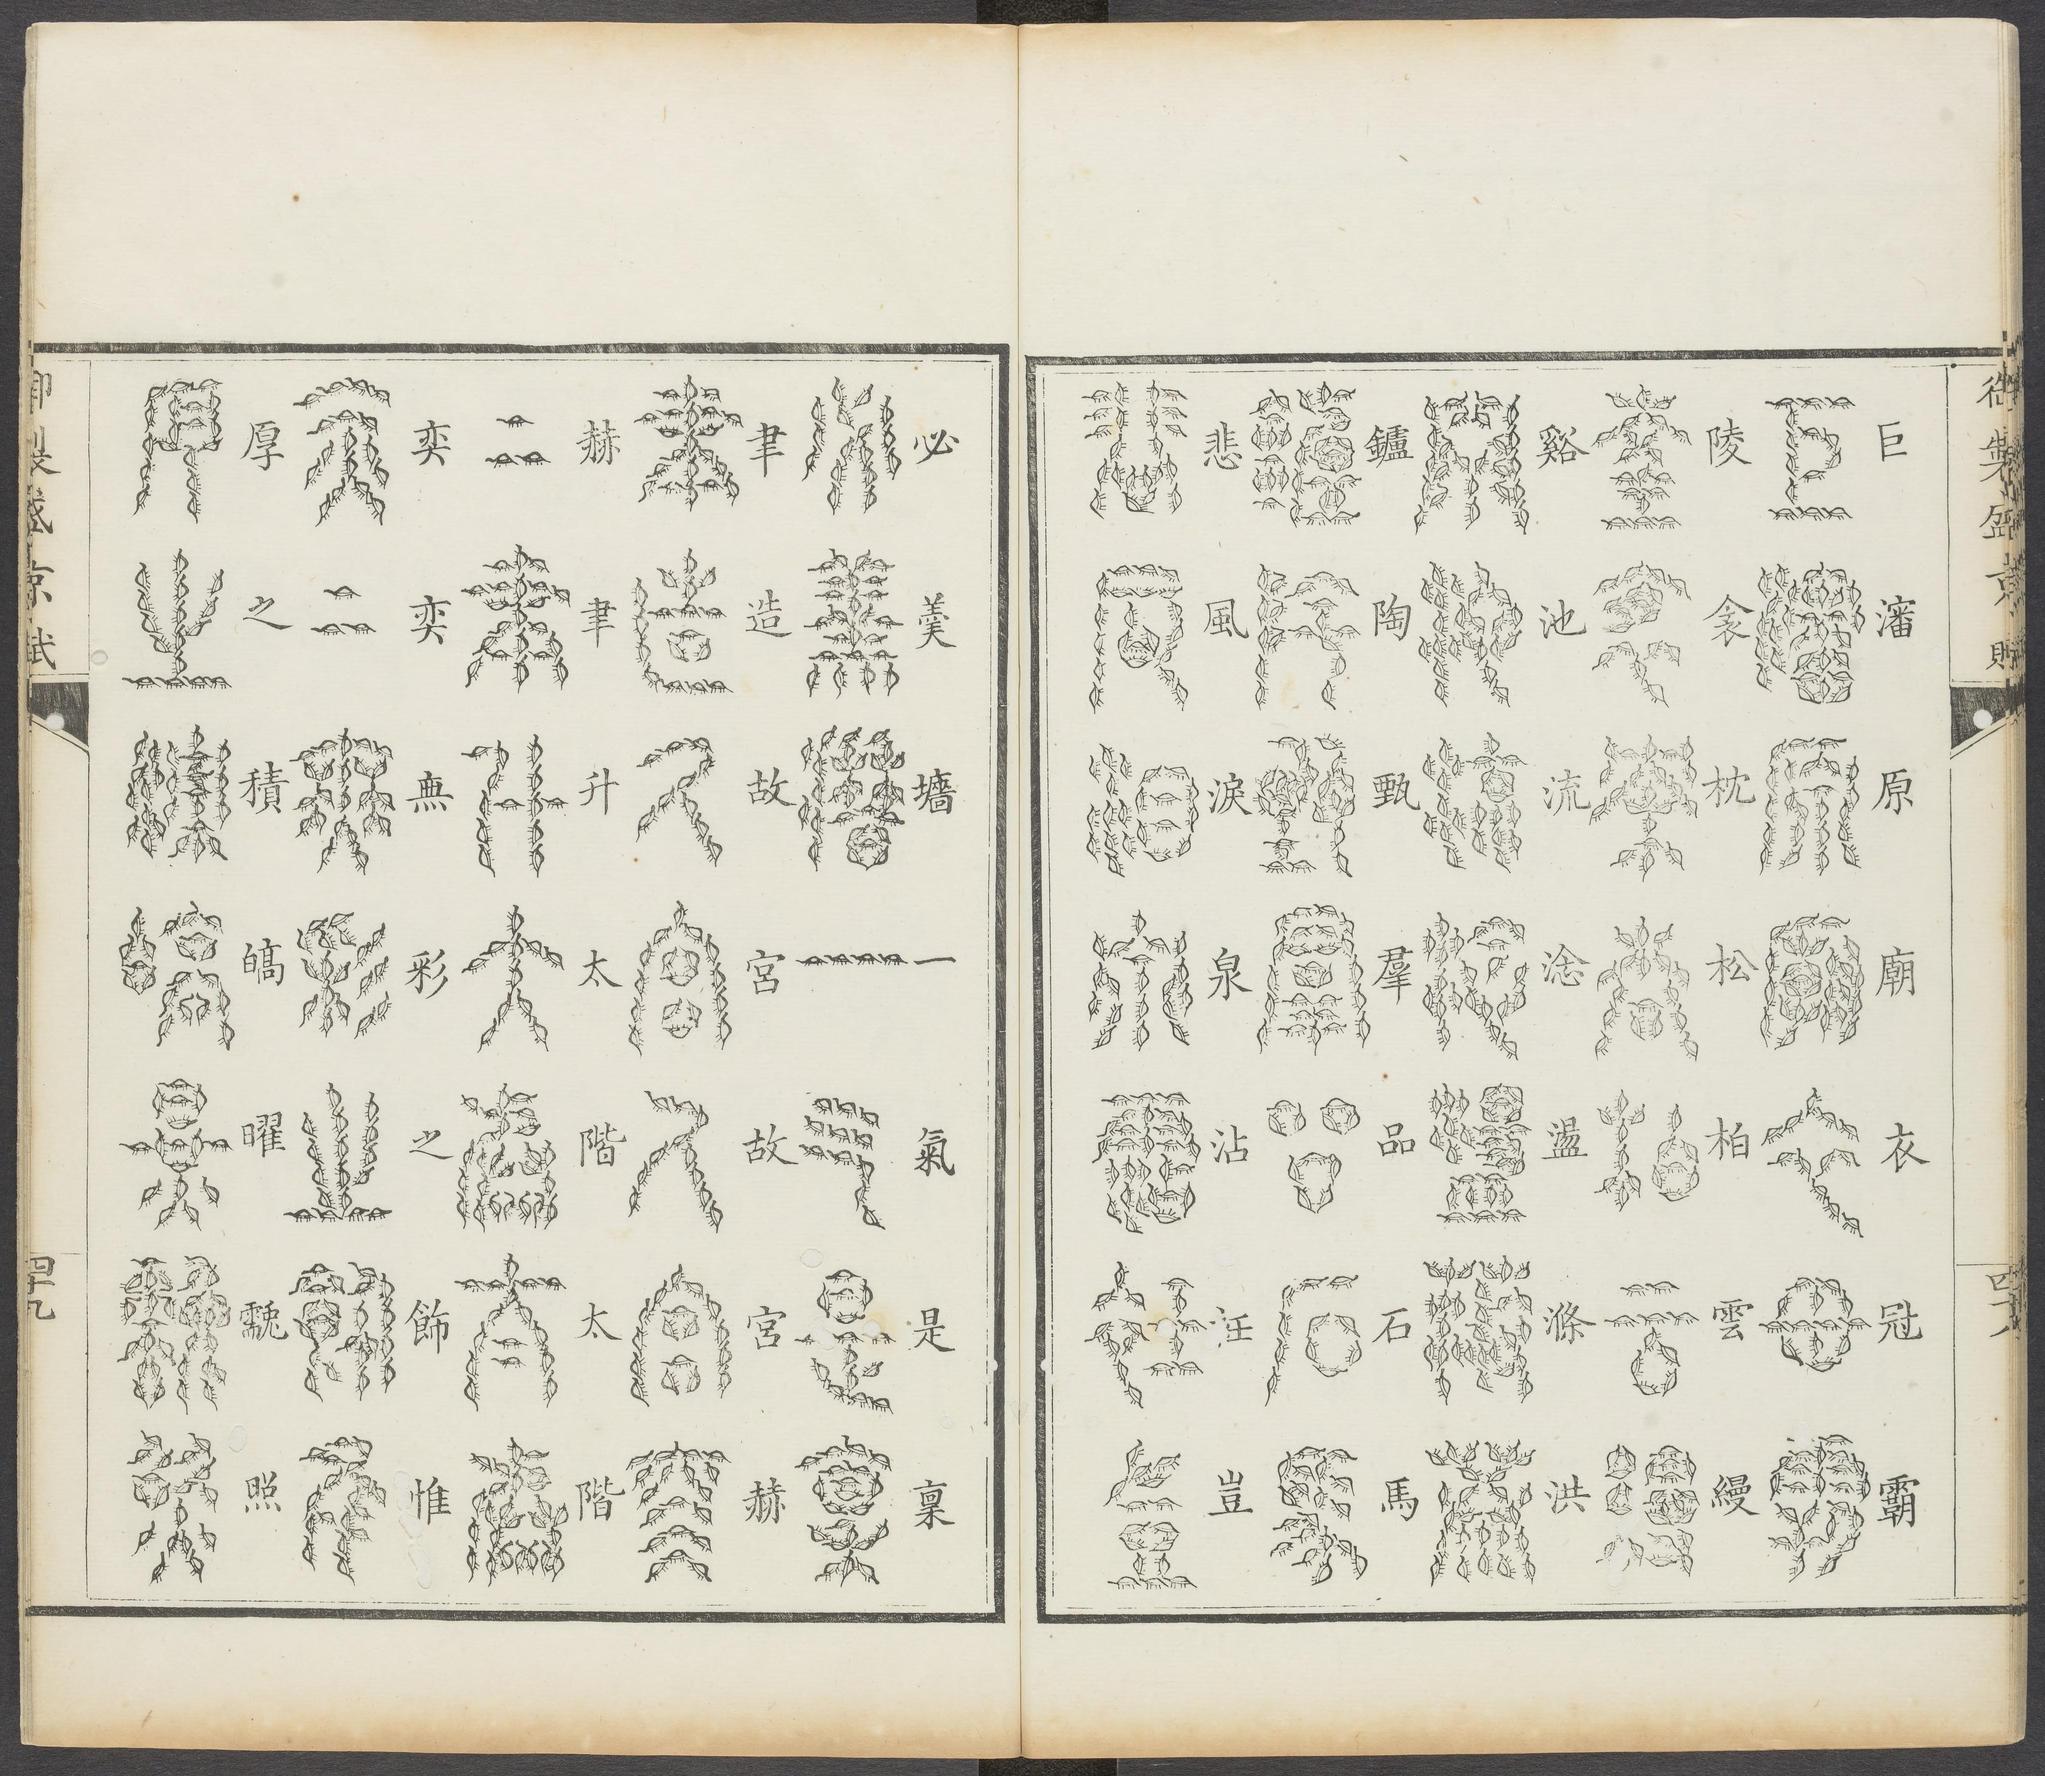 御製盛京賦
四十八
巨瀋原廟衣冠霸
陵衾枕松柏雲縵
谿池流淰盪滌洪
鑪陶甄羣品石馬
悲風淚泉沾汪豈
必羹墻一氣是稟
聿造故宮故宮赫
赫聿升太階太階
奕奕無彩之飾惟
厚之積皜曜照
御製盛京賦
四十九